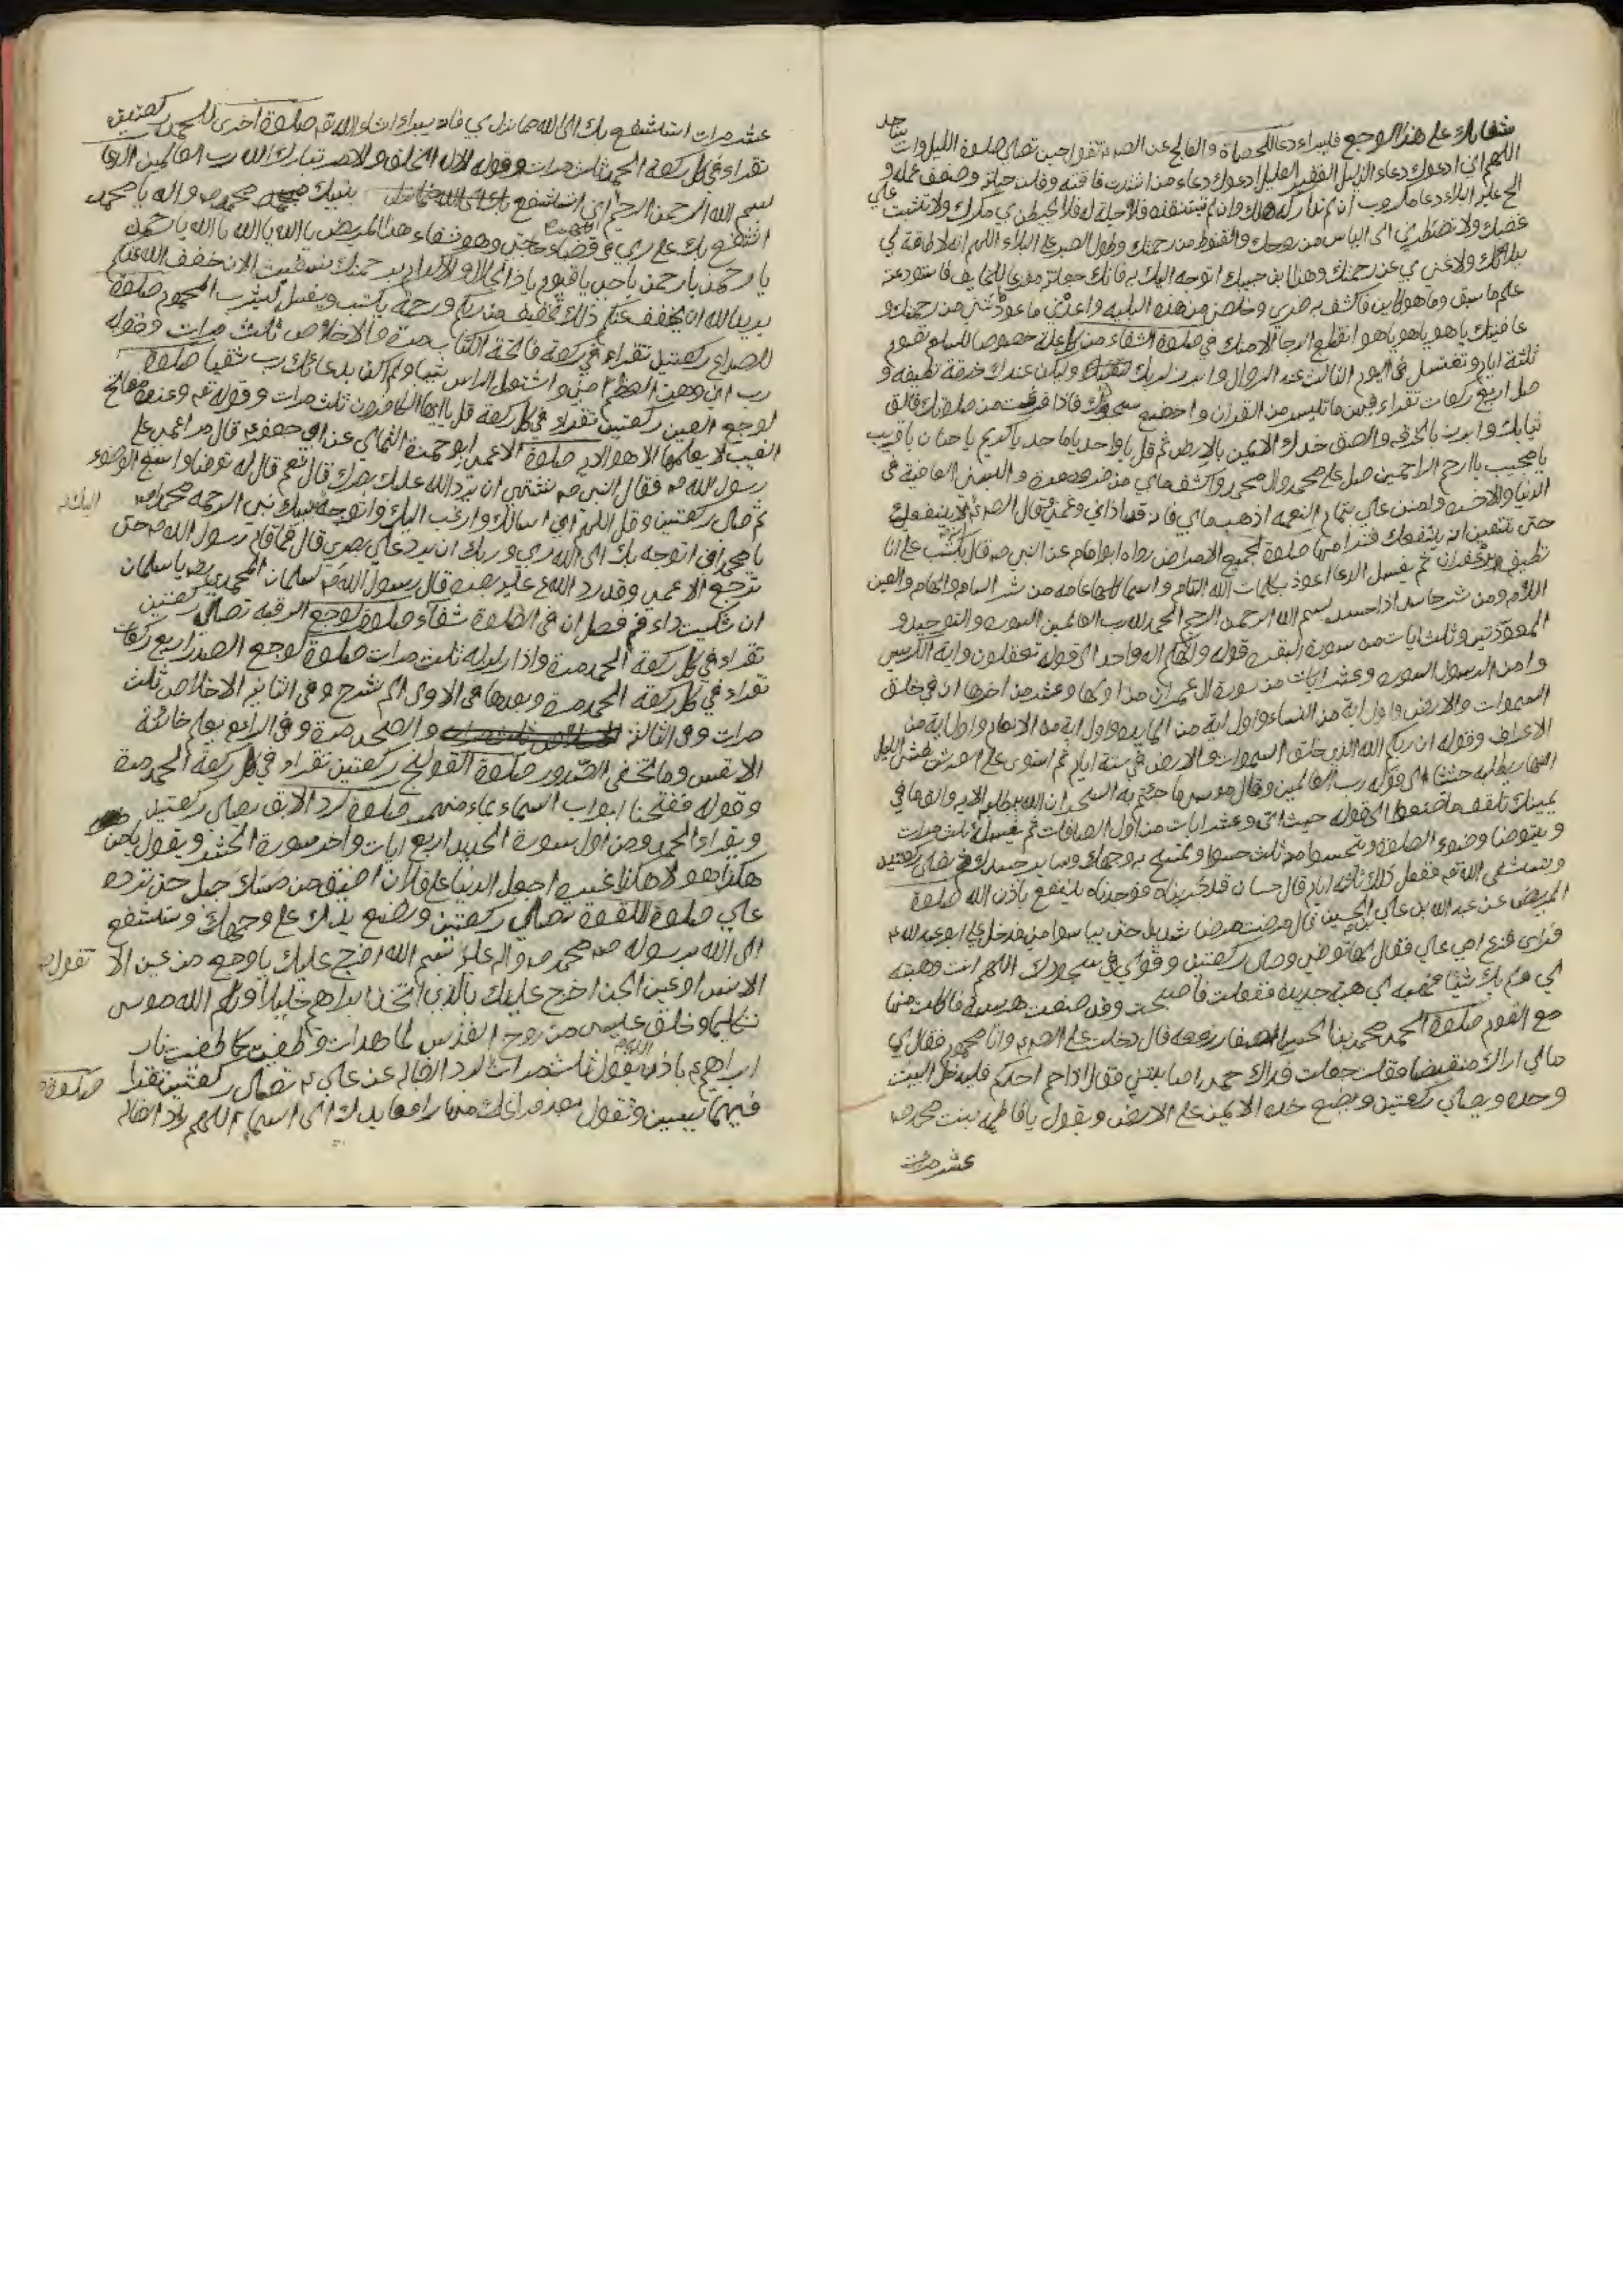 شفايك على هذا الوجع فليبراء دعا للحصاة والفالج عن الصـ تقول حين تصلي صلوة الليل وانت ساجد
اللهم اني ادعوك دعاء الذليل الفقير العليل ادعوك دعاء من اشتدت فاقته وقلت حيلته وضعف عمله و
الح عليه البلاء دعا مكروب ان لم تداركه هلك وان لم تستنقذه فلا حيلة له فلا تحيطن بي مكرك ولا تثبت علي
غضبك ولا تضطرني الى الياس من روحك والقنوط من رحمتك وطول الصبر على البلاء اللهم انه لا طاقة لي
ببلائك ولا غنى بي عن رحمتك وهذا ابن حبيبك اتوجه اليك به فانك جعلته مفزعا للخايف واستودعته
علم ما سبق وما هو كاين فاكشف به ضري وخلصني من هذه البلية واعدني ما عودتني من رحمتك و
عافيتك ياهو ياهو ياهو انقطع الرجا الا منك في صلوة الشفاء من كل علة خصوصا السلع تصوم
ثلثة ايام وتغتسل في اليوم الثالث عند الزوال وابرز لربك وليكن عندك خرقة نظيفة و
صل اربع ركعات تقراء فيهن ما تيسر من القران واخضع بجهدك فاذا فرغت من صلوتك فالق
ثيابك وابرز بالخرقة والصق خدك الايمن بالارض ثم قل يا واحد يا ماجد يا كريم يا حنان يا قريب
يا مجيب يا ارحم الراحمين صل على محمد وال محمد واكشف ما بي من ضر ومعرة والبسني العافية في
الدنيا والاخرة وامنن علي بتمام النعمة اذهب ما بي فانه قد اذاني وغمني وقال الصـ انه لا ينفعك
حتى تتيقن انه ينفعك فتبرا منها صلوة لجميع الامراض رواه ابو امامه عن النبي صـ قال يكتب على انا
نظيف بزعفران ثم يغسل الدعا اعوذ بكلمات الله التامه واسمائه كلها عامه من شر السامه والهامه والعين
اللامه ومن شر حاسد اذا حسد بسم الله الرحمن الرحيم الحمد لله رب العالمين السورة والتوحيد و
المعوذتين وثلث ايات من سورة البقرة قوله والهكم اله واحد الى قوله تعقلون واية الكرسي
وامن الرسول السورة وعشر ايات من سورة ال عمران من اولها وعشر من اخرها ان في خلق
السموات والارض واول اية من النساء واول اية من المايده واول اية من الانعام واول اية من
الاعراف وقوله ان ربكم الله الذي خلق السموات والارض في ستة ايام ثم استوى على العرش يغشى الليل
النهار يطلبه حثيثا الى قوله رب العالمين وقال موسى ما جئتم به السحر ان الله سيبطله الاية والق ما في
يمينك تلقف ما صنعوا الى قوله حيث اتى وعشر ايات من اول الصافات ثم تغسله ثلث مرات
ويتوضا وضوء الصلوة وتحسوا منه ثلث حسوات وتمسح به وجهك وساير جسدك ثم تصلي ركعتين
وتستشفى الله تفعل ذلك ثلثة ايام قال حسان قد جربناه فوجدناه ينفع باذن الله صلوة
المريض عن عبد الله بن علي بن الحسين قال مرضت مرضا شديدا حتى يئسوا مني فدخل علي ابو عبد الله
فراى جزع امي علي فقال لها توضي وصلي ركعتين وقولي في سجودك اللهم انت وهبته
لي ولم يك شيئا فهبه لي هبة جديدة ففعلت فاصبحت وقد صنعت هريسة فاكلت منها
مع القوم صلوة الحمى محمد بن الحسن الصفار رفعه قال دخلت على الصـ وانا محموم فقال لي
مالي اراك منقبضا فقلت جعلت فداك حمى اصابتني فقال اذا حم احدكم فليدخل البيت
وحده ويصلي ركعتين ويضع خده الايمن على الارض ويقول يا فاطمة بنت محمد صـ
عشر مرات
عشر مرات استشفع بك الى الله مما نزل بي فانه يبراء انشاء الله صلوة اخرى للحمى ركعتين
تقراء في كل ركعة الحمد ثلث مرات وقوله الا له الخلق والامر تبارك الله رب العالمين الدعا
بسم الله الرحمن الرحيم اللهم اني استشفع بنبيك محمد صـ واله يا محمد
استشفع بك على ربي في قضاء حاجتي وهو شفاء هذا المريض يا الله يا الله يا الله يا رحمن
يا رحمن يا رحمن يا حي يا قيوم يا ذا الجلال والاكرام برحمتك استغيث الان خفف الله عنكم
يريد الله ان يخفف عنكم ذلك تخفيف من ربكم ورحمة يكتب ويغسل ليشرب المحموم صلوة
للصداع ركعتين تقراء في ركعة فاتحة الكتاب مرة والاخلاص ثلث مرات وقوله
رب اني وهن العظم مني واشتعل الراس شيبا ولم اكن بدعائك رب شقيا صلوة
لوجع العين ركعتين تقراء في كل ركعة قل يا ايها الكافرون ثلث مرات وقوله وعنده مفاتح
الغيب لا يعلمها الا هو الاية صلوة الاعمى ابو حمزة الثمالي عن ابي جعفر قال مر اعمى على
رسول الله صـ فقال النبي صـ تشتهي ان يرد الله عليك بصرك قال نعم قال له توضا واسبغ الوضوء
ثم صل ركعتين وقل اللهم اني اسالك وارغب اليك واتوجه بنبيك نبي الرحمة محمد صـ اليك
يا محمد اني اتوجه بك الى الله ربي وربك ان يرد علي بصري قال فما قام رسول الله صـ حتى
ترجع الاعمى وقد رد الله عليه بصره قال رسول الله صـ لسلمان المحمدي يا سلمان
ان شكيت داء قم فصل ان في الصلوة شفاء صلوة لوجع الرقبة تصلي ركعتين
تقراء في كل ركعة الحمد مرة واذا زلزله ثلث مرات صلوة لوجع الصدر اربع ركعات
تقراء في كل ركعة الحمد مرة وبعدها في الاولى الم نشرح وفي الثانية الاخلاص ثلث
مرات وفي الثالثة والضحى مرة وفي الرابع يعلم خائنة
الاعين وما تخفي الصدور صلوة القولنج ركعتين تقراء في كل ركعة الحمد مرة
وقوله ففتحنا ابواب السماء بماء منهمر صلوة لرد الابق تصلي ركعتين
ويقراء الحمد ومن اول سورة الحديد اربع ايات واخر سورة الحشر ويقول يا من
هكذا هو لا هكذا غيره اجعل الدنيا على فلان اضيق من مسك جمل حتى ترده
علي صلوة اللقوة تصلي ركعتين وتضع يدك على وجهك وتستشفع
الى الله برسوله محمد صـ واله عليه بسم الله اخرج عليك يا وجع من عين الا تقول
الانس او عين الجن اخرج عليك بالذي اتخذ ابراهيم خليلا وكلم الله موسى
تكليما وخلق عيسى من روح القدس لما هدات وطفيت كما طفيت نار
ابراهيم باذن الله يقول ثلث مرات لرد الضالة عن علي تصلي ركعتين تقرا صلوة
فيهما يسين وتقول بعد فراغك منها رافعا يدك الى السماء اللهم راد الضالة